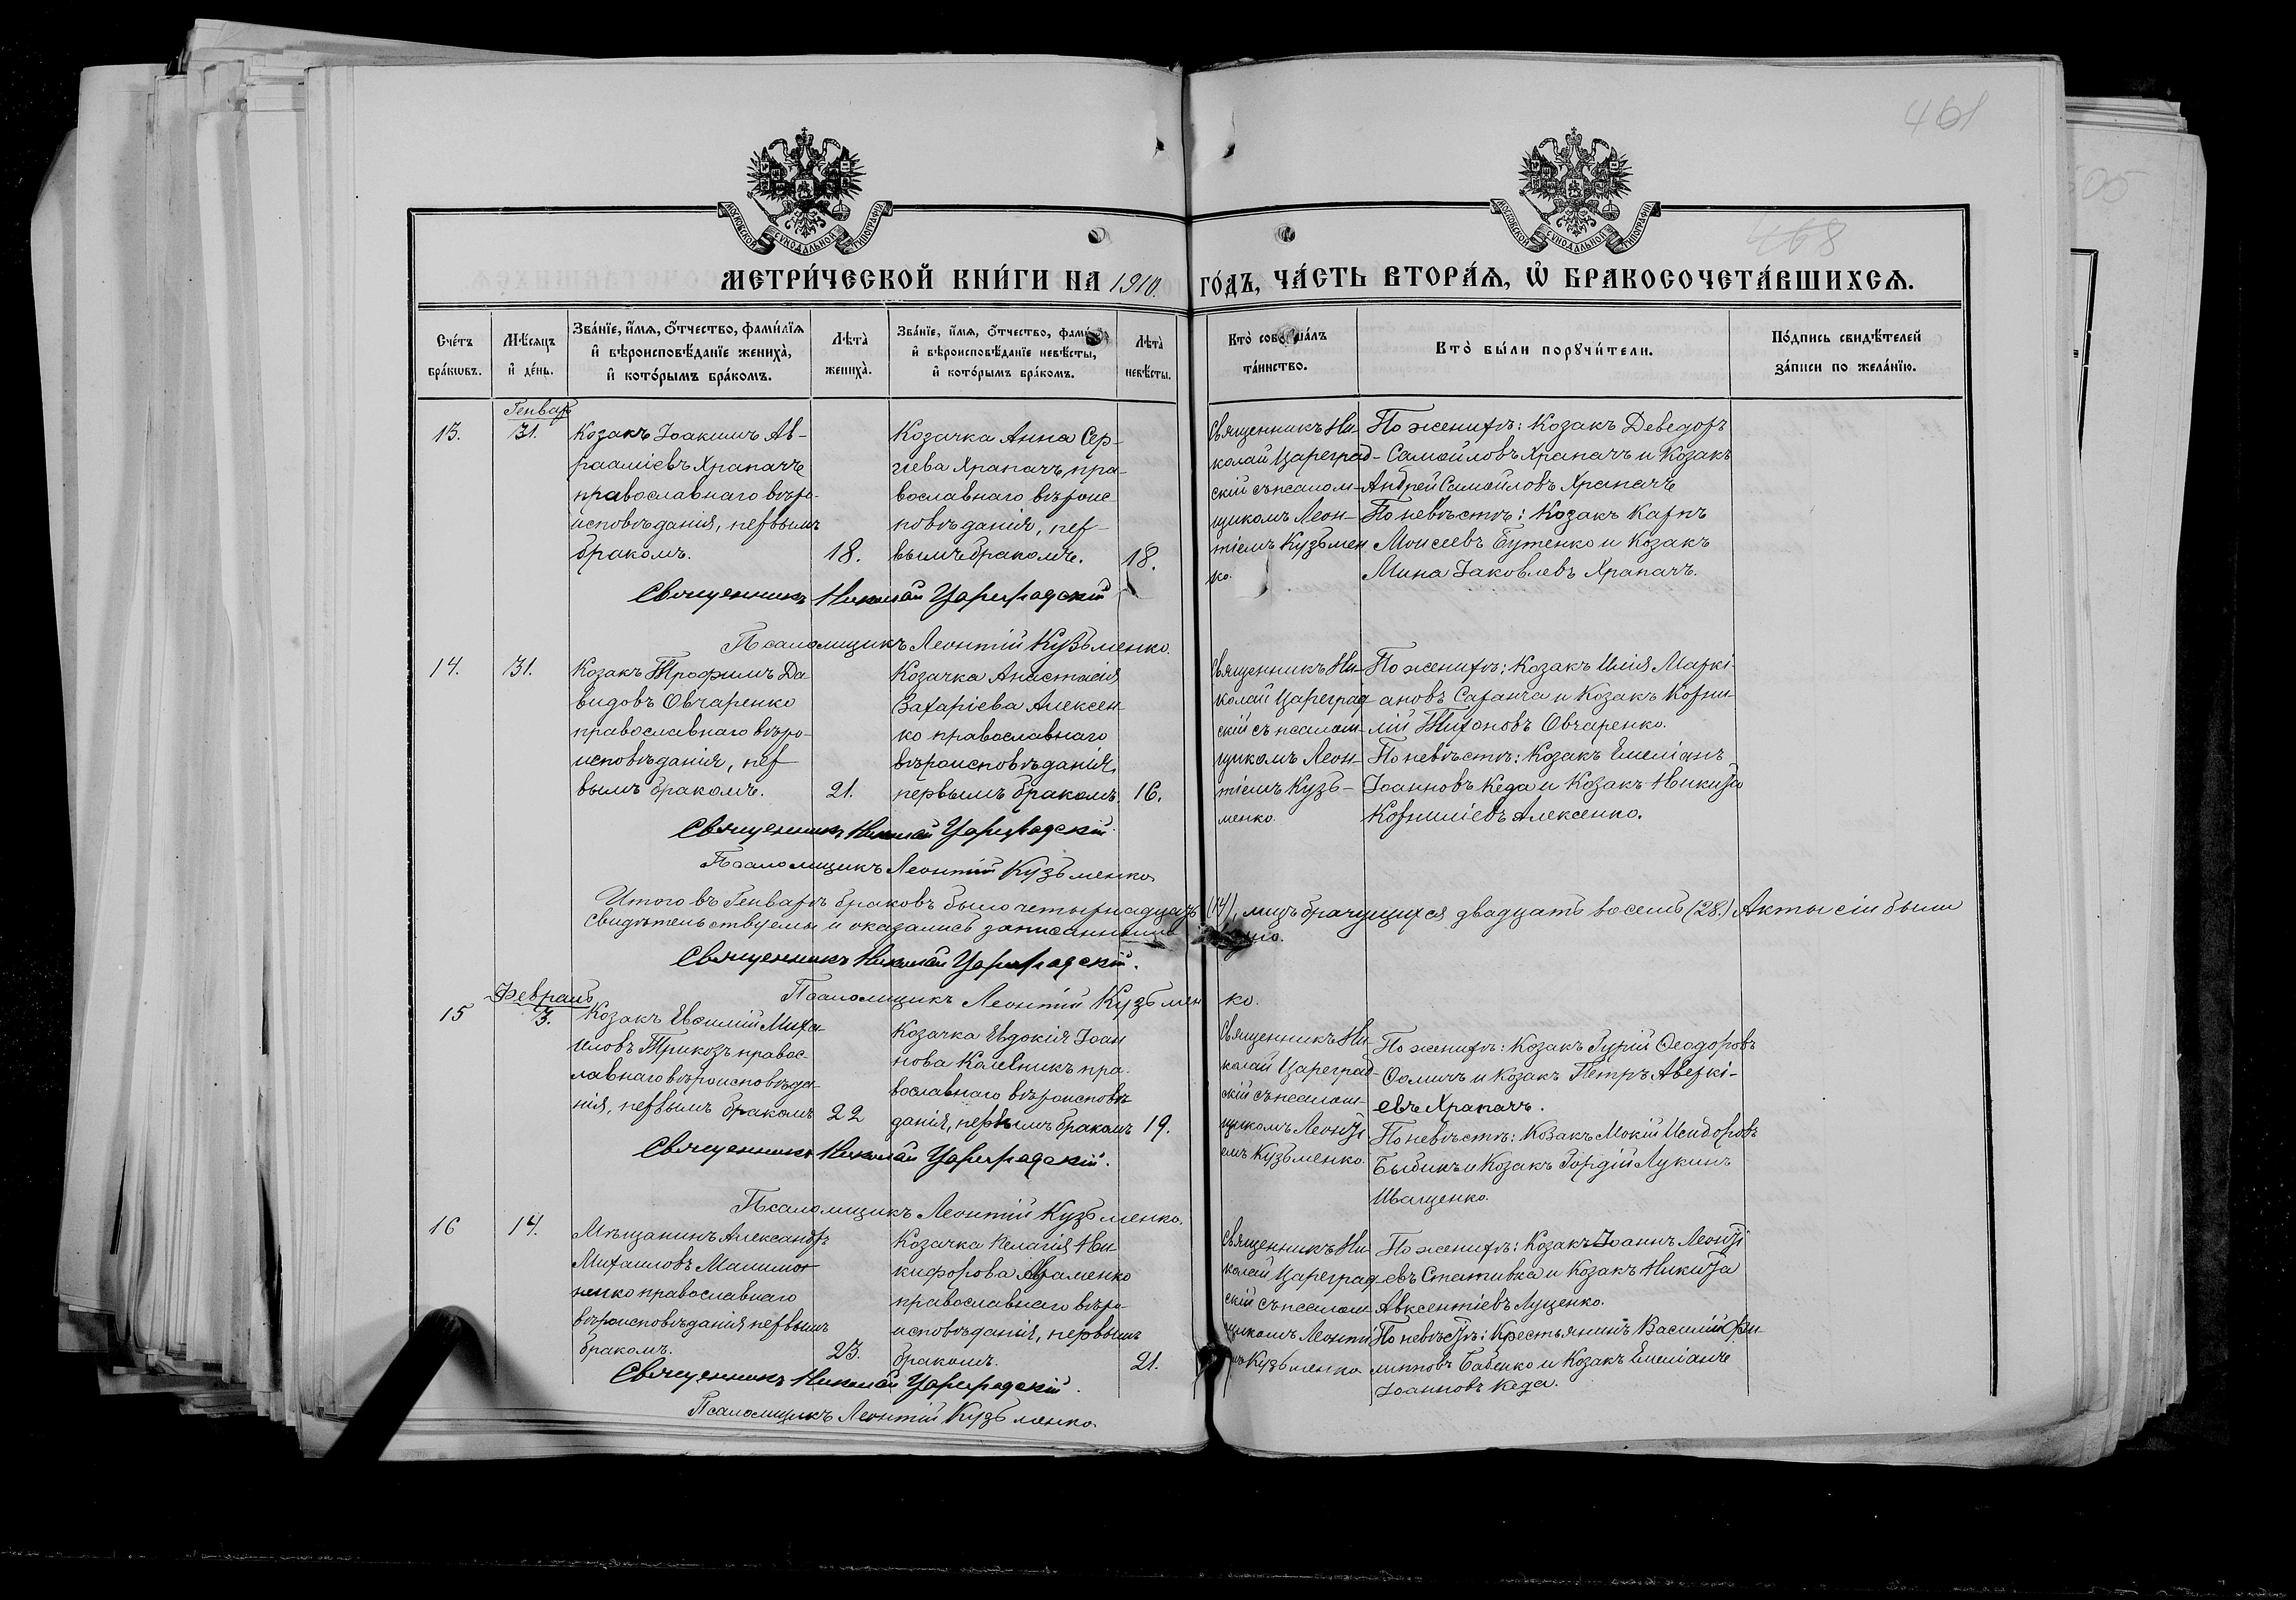 461
468
505
МОСКОВСКОЙ СУНОДАЛЬНОЙ ТИПОГРАФІИ
МОСКОВСКОЙ СУНОДАЛЬНОЙ ТИПОГРАФІИ
МЕТРИ́ЧЕСКОЙ КНИ́ГИ НА 1910. ГО́ДЪ, ЧА́СТЬ ВТОРА́Ѧ, Ѽ БРАКОСОЧЕТА́ВШИХСѦ.
Сче́тъ бра́кѡвъ.
Мѣ́сѧцъ и҆ де́нь.
Зва́нїе, и҆́мѧ, ѻ҆́тчество, фами́лїѧ и҆ вѣроисповѣ́данїе жениха̀, и҆ кото́рымъ бра́комъ.
Лѣ́та̀ жениха̀.
Зва́нїе, и҆́мѧ, ѻ҆́тчество, фами́лїѧ и҆ вѣроисповѣ́данїе невѣ́сты, и҆ кото́рымъ бра́комъ.
Лѣ́та̀ невѣ́сты.
Кто̀ соверша́лъ та́инство.
Кто̀ бы́ли порꙋчи́тели.
По́дпись свидѣ́телей за́писи по жела́нїю.
Генварь
13.
31.
Козакъ Іоакимъ Ав-
рааміевъ Храпачъ
православнаго вѣро-
исповѣданія, первымъ
бракомъ.
18.
Козачка Анна Сер-
гіева Храпачъ пра-
вославнаго вѣроис
повѣданія, пер-
вымъ бракомъ.
18.
Священникъ Ни-
колай Цареград-
скій съ псалом-
щикомъ Леон-
тіемъ Кузьмен
ко.
По женихѣ: Козакъ
Самойловъ Храпачъ и Козакъ
Андрей Самойловъ Храпачъ
По невѣстѣ: Козакъ Карпъ
Моисеевъ Бутенко и Козакъ
Мина Іаковлевъ Храпачъ.
Священникъ Николай Цареградскій
Псаломщикъ Леонтій Кузьменко.
14.
31.
Козакъ Трофимъ Да
видовъ Овчаренко
православнаго вѣро-
исповѣданія, пер
вымъ бракомъ.
21.
Козачка Анастасія
Захаріева Алексен
ко православнаго
вѣроисповѣданія,
первымъ бракомъ.
16.
Священникъ Ни-
колай Цареград
скій съ псалом-
щикомъ Леон-
тіемъ Кузь-
менко.
По женихѣ: Козакъ Илія Маркі-
ановъ Саранча и Козакъ Корни
лій Тихоновъ Овчаренко.
По невѣстѣ: Козакъ Емеліанъ
Іоанновъ Кеда и Козакъ Никита
Корниліевъ Алексенко.
Священникъ Николай Цареградскій.
Псаломщикъ Леонтій Кузьменко
Итого въ Генварѣ браковъ было четырнадцать (14), лицъ брачущихся двадцать восемь (28.) Акты сіи были
свидѣтельствуемы и оказались записанными
Священникъ Николай Цареградскій.
Псаломщикъ Леонтій Кузьменко.
Февраль
15
3.
Козакъ Евсилій Миха-
иловъ Трикозъ правос-
лавнаго вѣроисповѣда-
нія, первымъ бракомъ
22
Козачка Евдокія Іоан
нова Колевникъ пра-
вославнаго вѣроисповѣ
данія, первымъ бракомъ
19.
Священникъ Ни
колай Цареград-
скій съ псалом-
щикомъ Леонті
емъ Кузьменко.
По женихѣ: Козакъ Гурій Ѳеодоровъ
Ѳоминъ и Козакъ Петръ Аверкі-
евъ Храпачъ.
По невѣстѣ: Козакъ Мокій Исидоровъ
и Козакъ Гордій Лукинъ
Иващенко.
Священникъ Николай Цареградскій.
Псаломщикъ Леонтій Кузьменко.
16
14.
Мѣщанинъ Александръ
Михаиловъ Малимо
ненко православнаго
вѣроисповѣданія первымъ
бракомъ.
23.
Козачка Пелагія Ни
кифорова Авраменко
православнаго вѣро-
исповѣданія, первымъ
бракомъ.
21.
Священникъ Ни-
колай Цареград-
скій съ псалом
щикомъ Леонті
емъ Кузьменко
По женихѣ: Козакъ Іоаннъ Леонті
евъ Стативка и Козакъ Никита
Авксентіевъ Луценко.
По невѣстѣ: Крестьянинъ Василій Фи-
липповъ Бабенко и Козакъ Емеліанъ
Іоанновъ Кеда.
Священникъ Николай Цареградскій.
Псаломщикъ Леонтій Кузьменко.